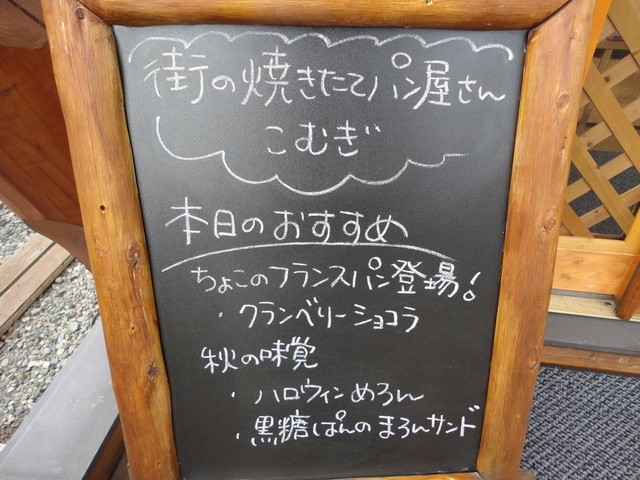 街の焼きたてパン屋さん
こむぎ
本日のおすすめ
ちょこのフランスパン登場!
・クランベリーショコラ
秋の味覚
・ハロウィンめろん
・黒糖ぱんのまろんサンド